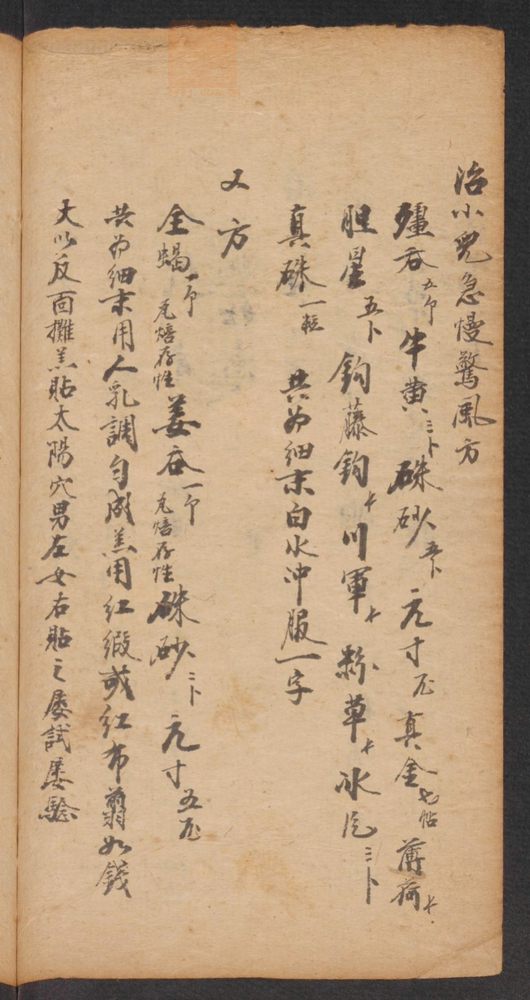 治小兒急慢驚風方
殭吞五个 牛黄三卜 硃砂五卜 元寸 真金七帖 薄荷十
胆星五卜 鈎藤鈎十 川軍十 粉草十 冰片三卜
真硃一粒 共为细末白水冲服一字
又方
全蝎一个 瓦焙存性 姜吞一个 瓦焙存性 硃砂二卜 元寸五厘
共为细末用人乳調匀成羔用红緞或红布剪如錢
大以反面攤羔貼太陽穴男左女右貼之屡試屡驗